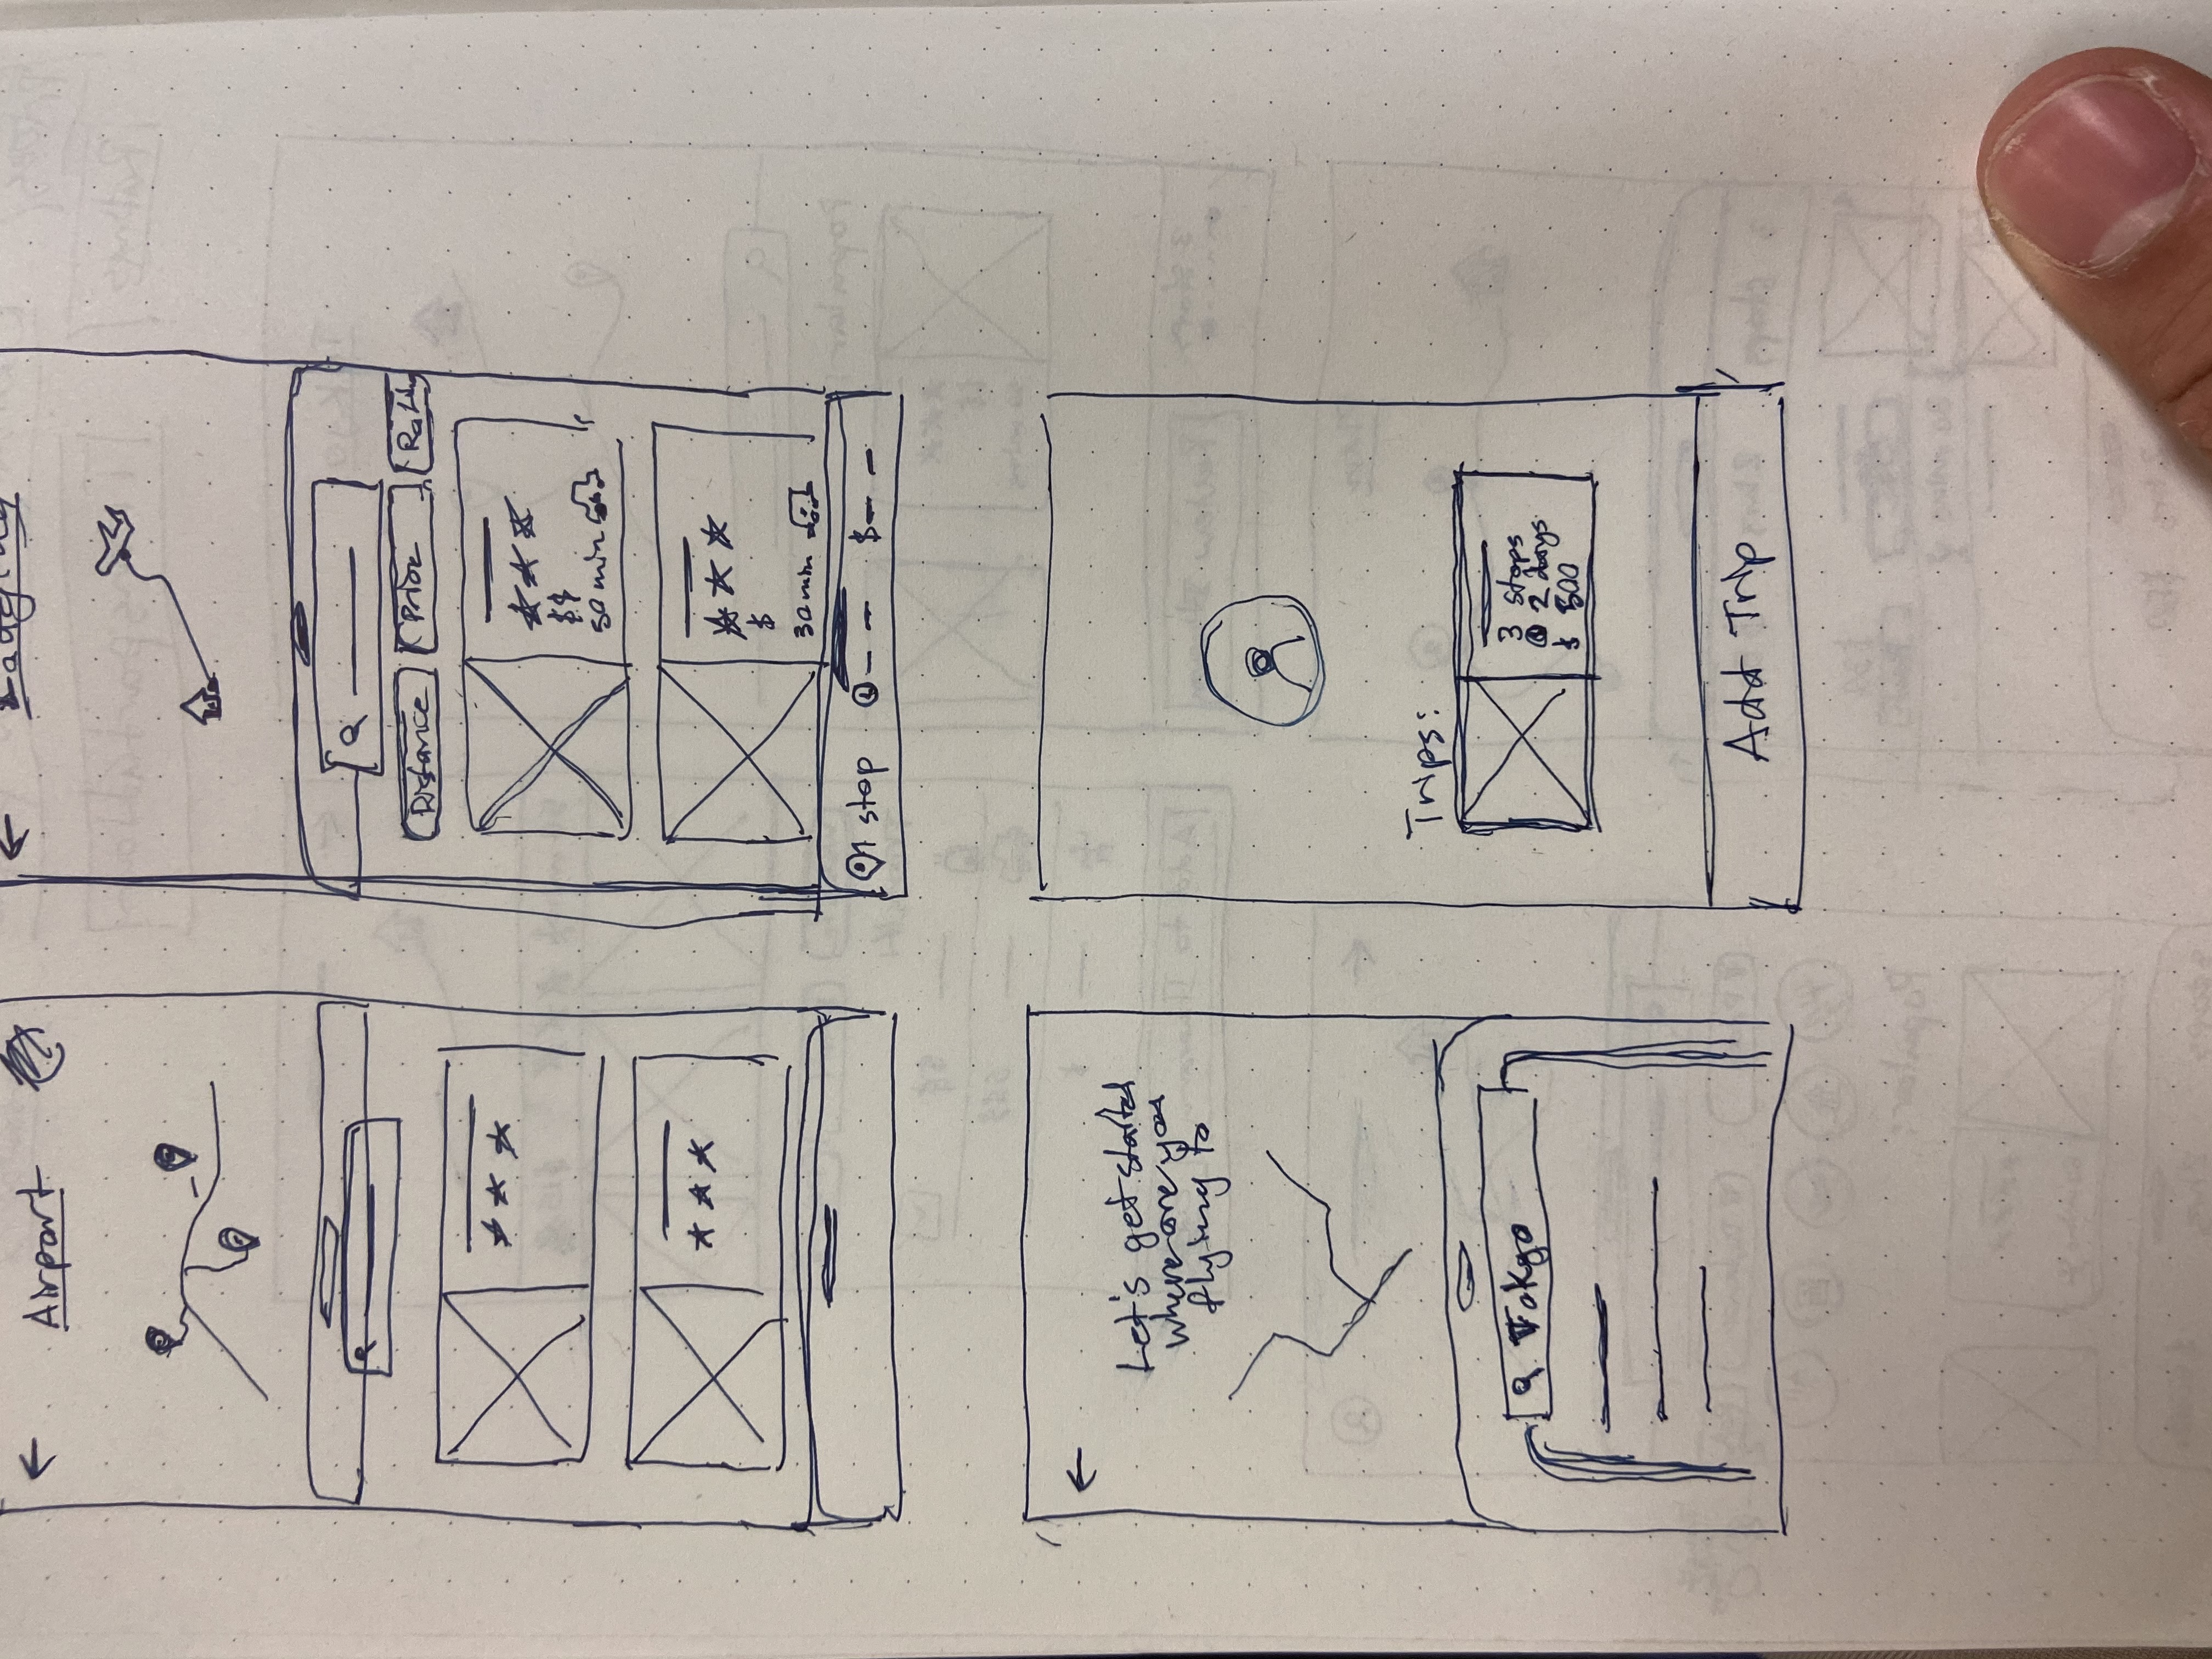 Airport
Lodging
Distance
Price
Rating
$$
50 min
$
30 min
1 stop
$
Let's get started
where are you
flying to
Tokyo
Trips:
3 stops
2 days
$ 500
Add Trip